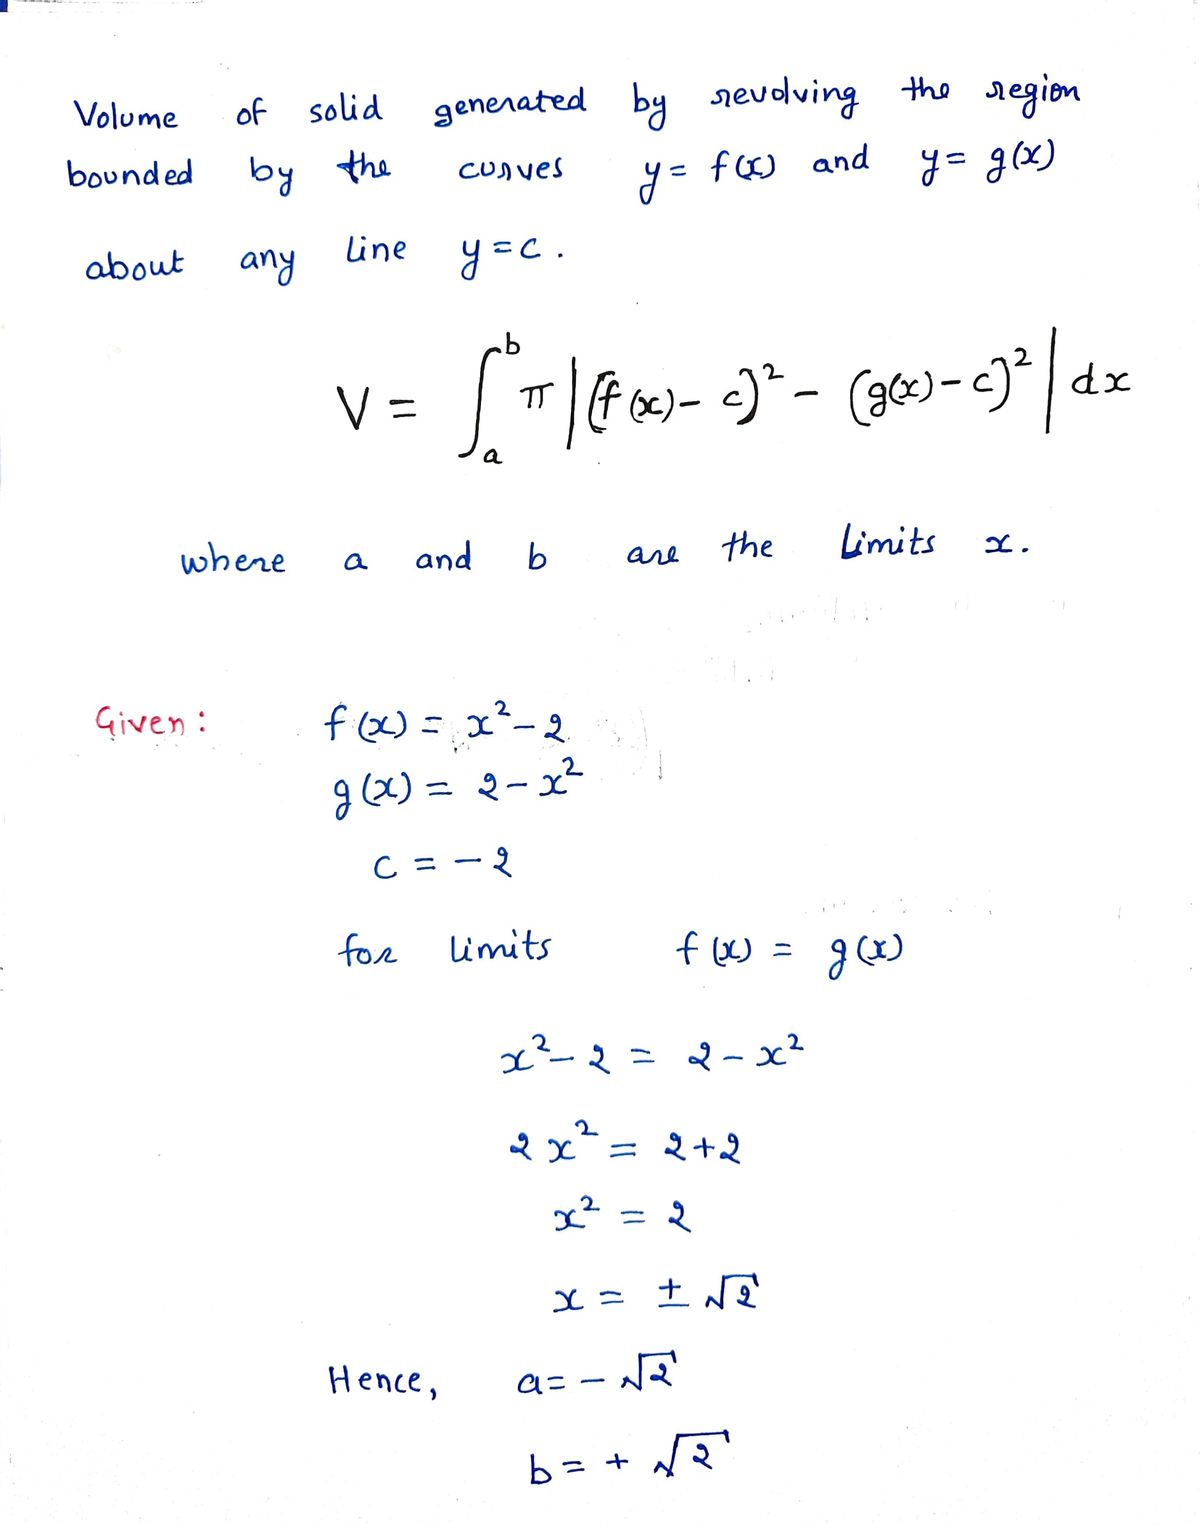 Volume of solid generated by revolving the region
bounded by the curves y = f(x) and y = g(x)
about any line y = c.
V = ∫_a^b π |(f(x) - c)² - (g(x) - c)²| dx
where a and b are the Limits x.
Given: f(x) = x² - 2
g(x) = 2 - x²
c = - 2
for limits f(x) = g(x)
x² - 2 = 2 - x²
2x² = 2+2
x² = 2
x = ± √2
Hence, a = - √2
b = + √2